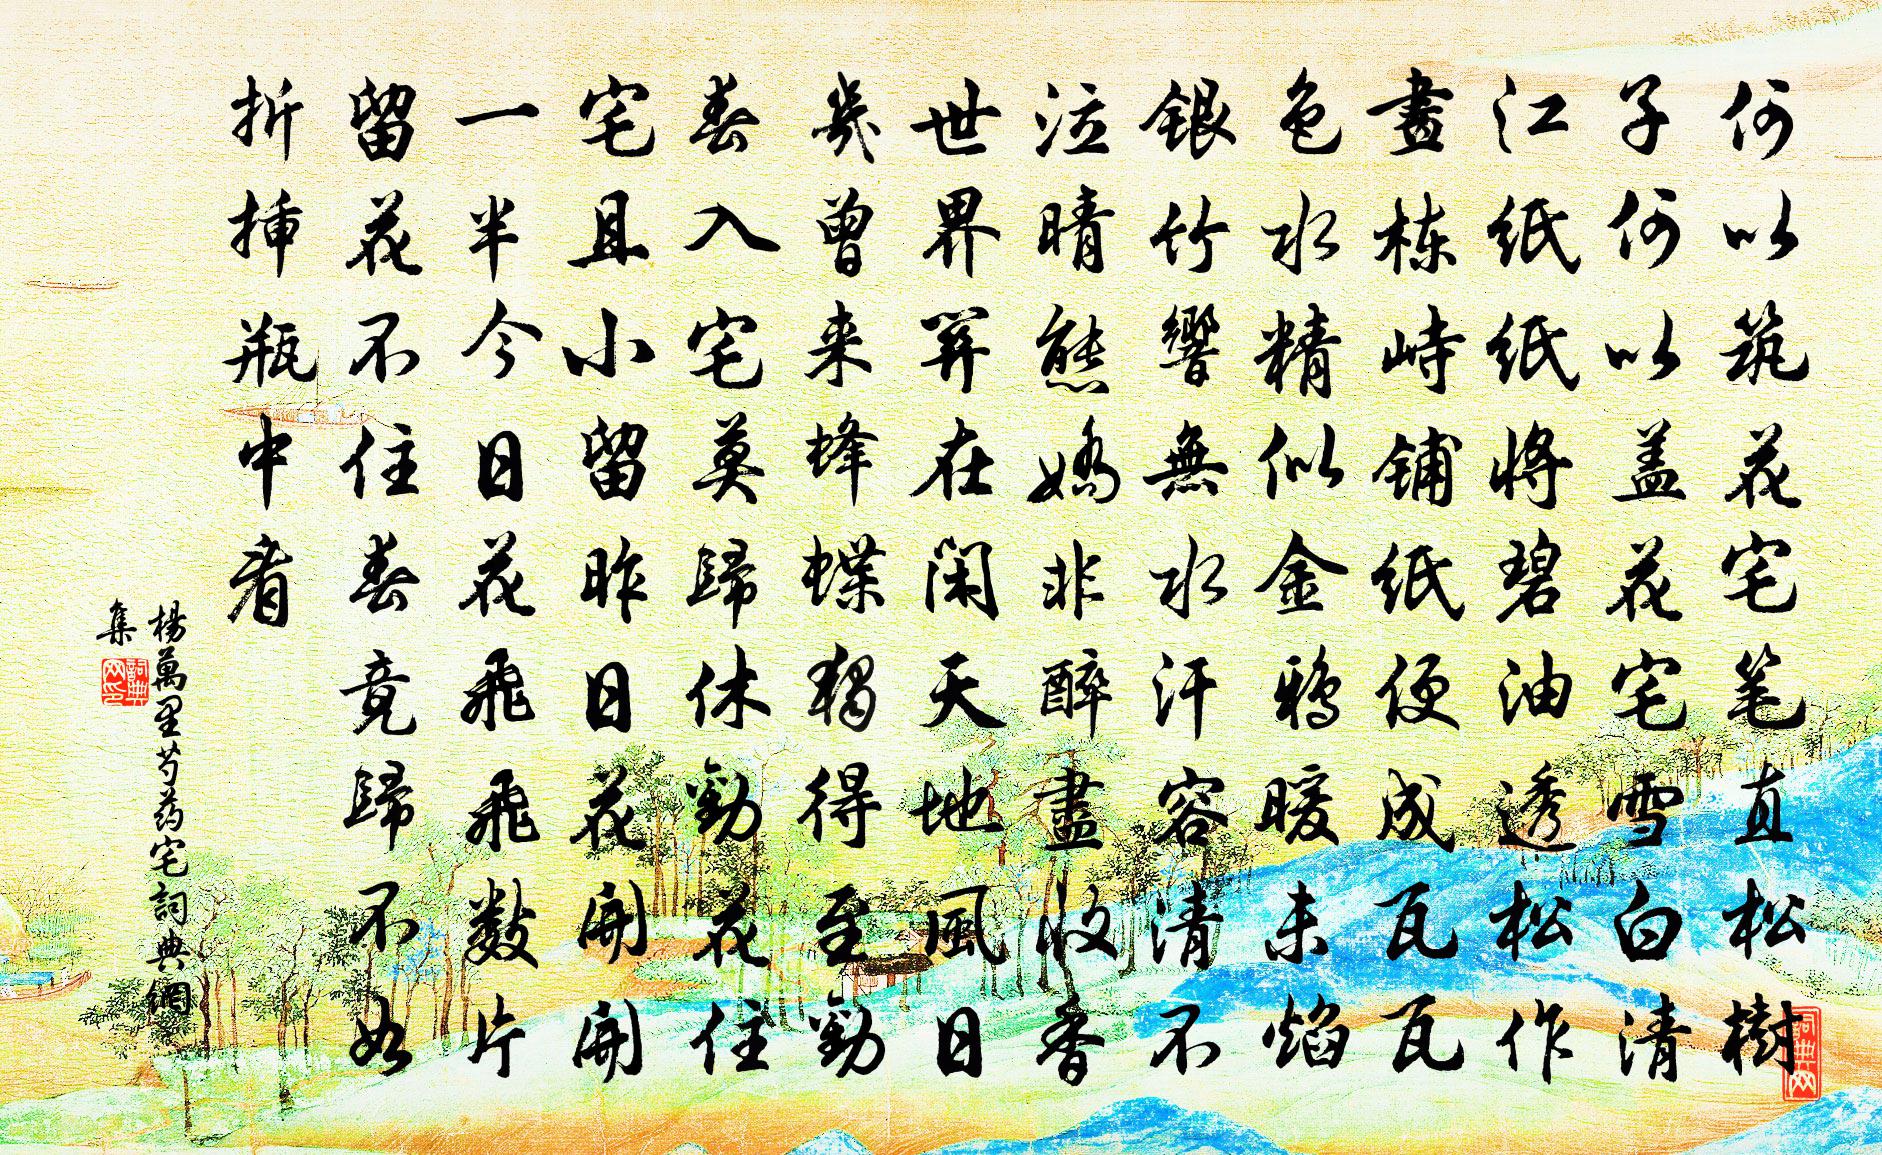 何以筑花宅笔直松樹
子何以盖花宅雪白清
江纸纸将碧油透松作
畫栋峙铺纸便成瓦瓦
色水精似金鸦暖未焰
銀竹響無水汗容清不
泣晴態嬌非醉盡收香
世界羿在闲天地風日
幾曾来蜂蝶獨得至勸
春入宅莫歸休勸花住
宅且小留昨日花開開
一半今日花飛飛數片
留花不住春竟歸不如
折挿瓶中看
楊萬里芍药宅詞典網
集
詞典网印
詞典网